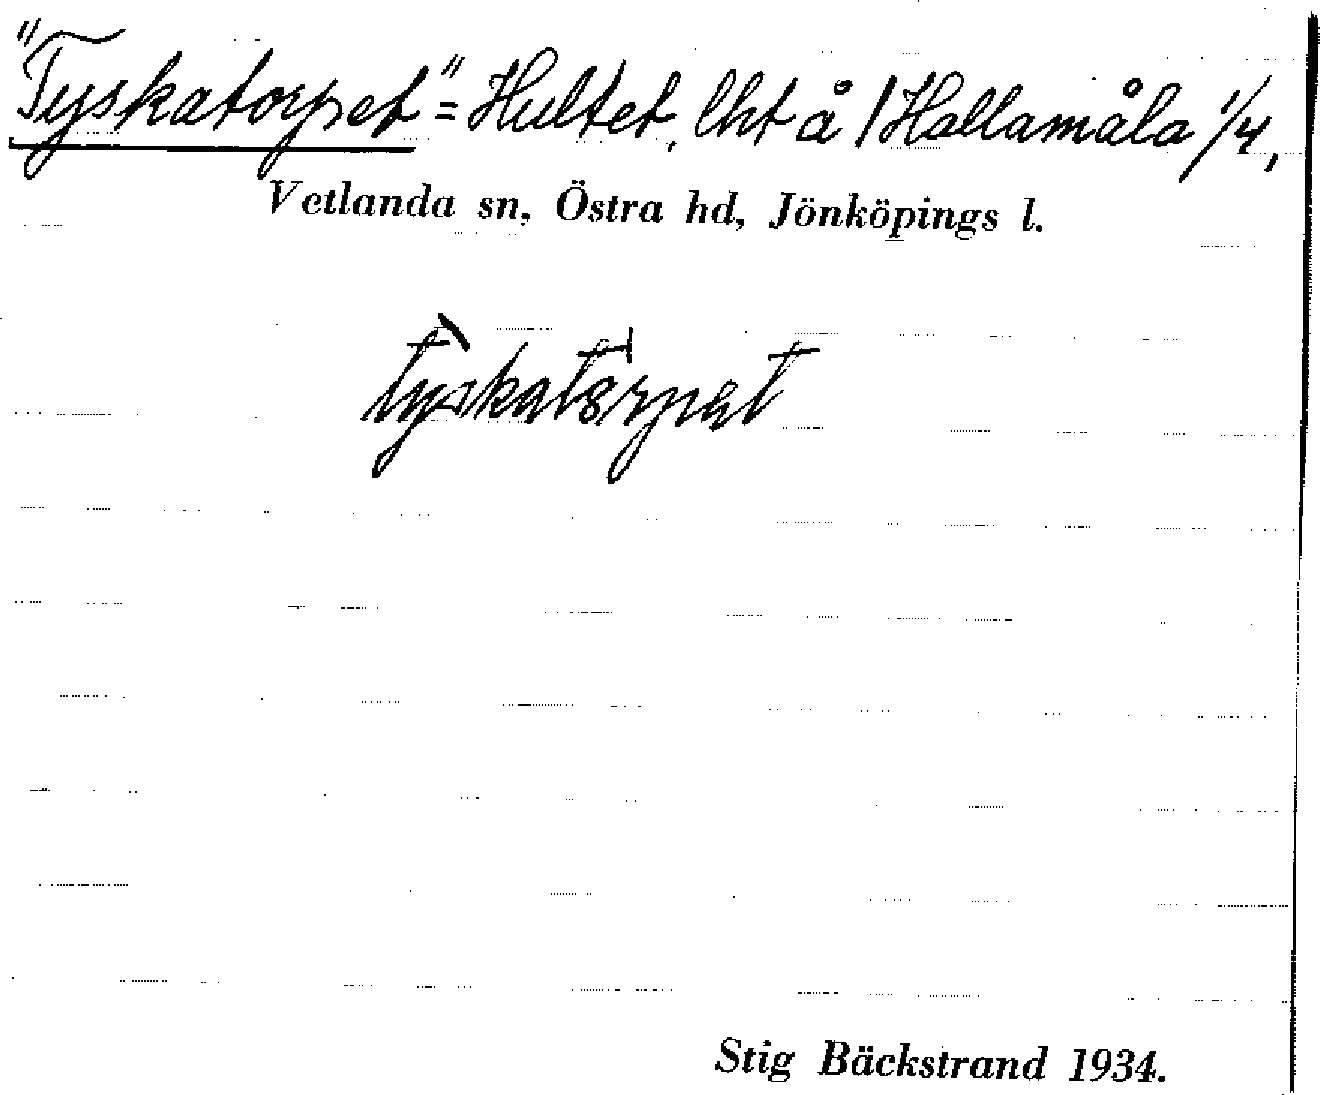 "Tyskatorpet" = Hultet, lht å /Hallamåla 1/4,
Vetlanda sn, Östra hd, Jönköpings l.
Stig Bäckstrand 1934.